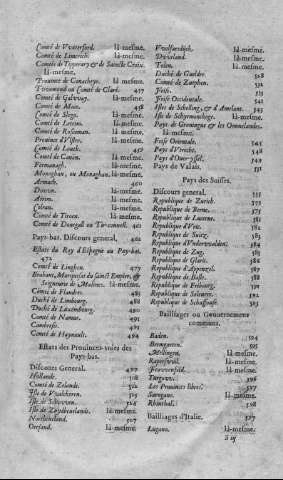 Comté de Vvaterford. là-mesme.
Comté de Limerich. là-mesme.
Comté de Tipperary & de Saincte Croix. là-mesme.
Prouince de Conachrye. là-mesme.
Tvvomond ou Comté de Clare. 457
Comté de Galvvay. là-mesme.
Comté de Maio. 458
Comté de Slego. là-mesme.
Comté de Letrim. là-mesme.
Comté de Roscoman. là-mesme.
Prouince d'Vlster. là-mesme.
Comté de Louth. 459
Comté de Cauan. là-mesme.
Fermanagh. là-mesme.
Monaghan, ou Monahan. là-mesme.
Armach. 460
Dovvn. là-mesme.
Antrim. là-mesme.
Colran. là-mesme.
Comté de Tiroen. là-mesme.
Comté de Dunegall ou Tir-connell. 461
Pays-bas. Discours general. 462
Estats du Roy d'Espagne au Pay-bas. 472
Comté de Linghen. 473
Brabant, Marquisat du Sainct Empire, & Seigneurie de Malines. là-mesme.
Comté de Flandres. 483
Duché de Limbourg. 480
Duché de Luxembourg. 490
Comté de Namur. 491
Cambresis. 493
Comté de Haynault. 494
Estats des Prouinces-vnies des Pays-bas.
Discours General. 497
Hollande. 508
Comté de Zelande. 522
Isle de Vvalkeren. 525
Isle de Schovven. 526
Isle de Zuydbeuelandt. là-mesme.
Nortbeueland. 527
Oresand. là-mesme.
Vvolfersdijck. là-mesme.
Duueland. là-mesme.
Tolen. là-mesme.
Duché de Gueldre. 528
Comté de Zutphen. 532
Frise.
Frise Occidentale. 542
Isles de Schelling, & d'Ameland. 545
Isle de Schyrmonickoge. là-mesme.
Pays de Groningue & les Ommelandes. là-mesme.
Frise Orientale. 545
Pays d'Vtrecht. 548
Pays d'Ouer-yssel. 549
Pays de Valais. 551
Pays des Suisses.
Discours general. 555
Republique de Zurich.
Republique de Berne. 575
Republique de Lucerne. 581
Republique d'Vrie. 582
Republique de Suitz. 583
Republique d'Vndervvalden. 584
Republique de Zug. 585
Republique de Glaris. 586
Republique d'Appenzel. 587
Republique de Basle. 588
Republique de Fribourg. 591
Republique de Soleurre. 592
Republique de Schaffouse. 593
Bailliages ou Gouuernemens communs.
Baden. 594
Bremgarten. 595
Mellingen. là-mesme.
Raperswil. là-mesme.
Fravvenfeld. là-mesme.
Turgavv. 596
Les Prouinces libres. 597
Sarnganz. là-mesme.
Rhinthal. là-mesme.
Bailliages d'Italie. 597
Lugano. là-mesme.